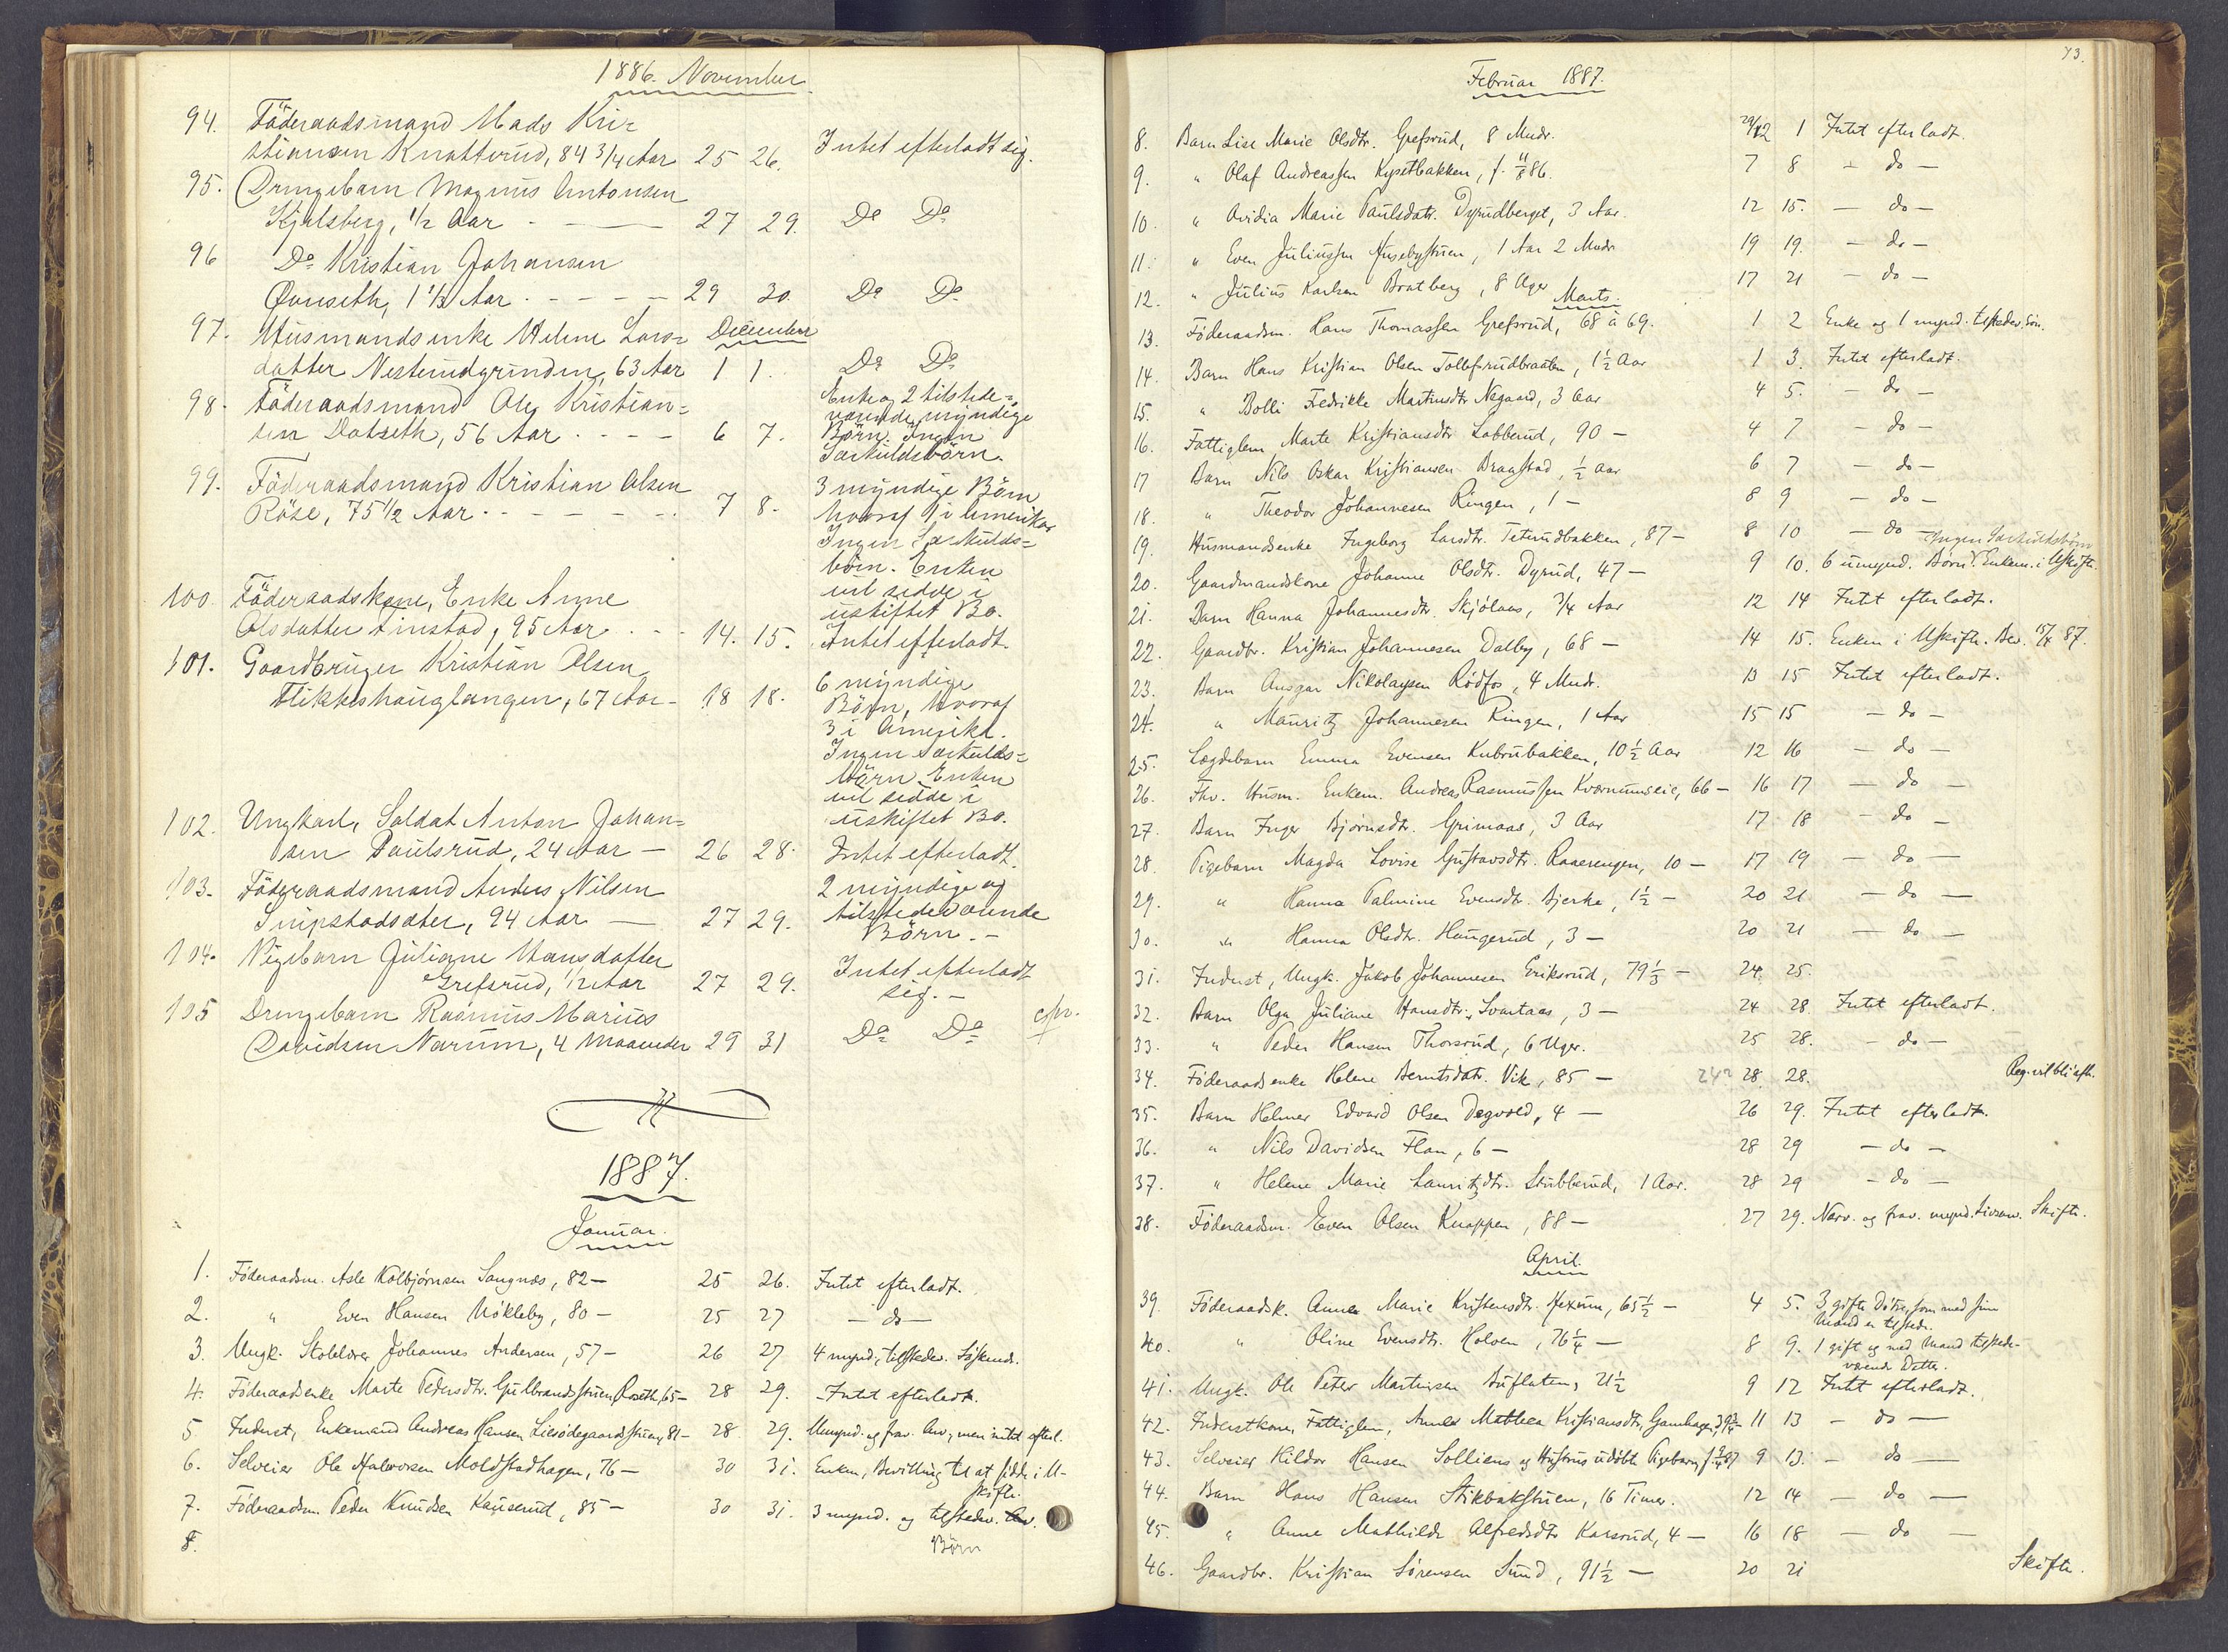 1886. November
94. Föderaadsmand Mads Kri=
stiansen Knatterud, 84 3/4 Aar 25 26. Intet efterladt sig.
95. Drengebarn Magnus Antonsen
Kjølsberg, 1/2 Aar - — 27 29. Do Do
96 Do Kristian Johansen
1 1/3 Aar - - - - 29 30. Do Do
97. Husmandsenke Helene Lars= December
datter 63 Aar 1 1. Do Do
98. Föderaadsmand Ole Kristian= Enke og 2 tilstede=
sen 56 Aar - - - 6 7. værende myndige
Börn. Ingen
Særkuldsbörn.
99. Föderaadsmand Kristian Olsen 3 myndige Börn
Röise, 75 1/2 Aar - - - - - 7 8. hvoraf 1 i Amerika
Ingen Særkulds=
börn. Enken
vil sidde i
uskiftet Bo.
100. Föderaadskone, Enke Anne
Olsdatter Finstad, 95 Aar . - 14. 15. Intet efterladt.
101. Gaardbruger Kristian Olsen
67 Aar - 18 18. 6 myndige
Börn, hvoraf
3 i Amerika.
Ingen Særkulds=
börn. Enken
vil sidde i
uskiftet Bo.
102. Ungkarl, Soldat Anton Johan=
sen Paulsrud, 24 Aar — 26 28. Intet efterladt.
103. Föderaadsmand Anders Nilsen 2 myndige og
94 Aar — 27 29. tilstedeværende
Börn. -
104. Pigebarn Juliane Hansdatter
Grefsrud, 1/2 Aar 27 29. Intet efterladt
sig. -
105 Drengebarn Rasmus Marius
Davidsen Narum, 4 Maaneder 29 31 Do Do
1887.
Januar.
1. Föderaadsm. Asle Kolbjørnsen Sangnæs, 82 — 25 26. Intet efterladt.
2. " Even Hansen Nökleby, 80 — 25 27 — do —
3. Ungk. Skolelærer Johannes Andersen, 57 — 26 27 4 mynd., tilstedev. Söskende.
4. Föderaadsenke Marte Pedersdtr. Gulbrandsstuen, Roseth, 65 — 28 29. Intet efterladt.
5 Inderst, Enkemand Andreas Hansen 81 — 28 29. Umynd. og frav. Arv., men intet efterl.
6. Selveier Ole Halvorsen Moldstadhagen, 76 — 30 31. Enken, Bevilling til at sidde i U-
skifte.
7. Föderaadsm. Peder Knudsen 85 — 30 31. 3 mynd. og tilstedev. Arv.
8. Börn
73.
Februar 1887.
8. Barn Lise Marie Olsdtr. Grefsrud, 8 Mndr. 1 Intet efterladt.
9. " Olaf Andreassen Kysetbakken, f. 86. 7 8 — do —
10. " Ovidia Marie Paulsdatr. Dyrudberget, 3 Aar. 12 15. — do —
11. " Even Juliussen Husebystuen, 1 Aar 2 Mndr 19 19. — do —
12. " Julius Karlsen Bratberg, 8 Uger 17 21 — do —
Marts.
13. Föderaadsm. Hans Thomassen Grefsrud, 68 à 69. 1 2 Enke og 1 mynd. tilstedev. Sön.
14. Barn Hans Kristian Olsen Tollefsrudbraaten, 1 1/2 Aar 1 3. Intet efterladt.
15. " Bolli Fedrikke Martinsdtr Nøgaard, 3 Aar 4 5. — do —
16. Fattiglem Marte Kristiansdtr. Labberud, 90 — 4 7 — do —
17 Barn Nils Oskar Kristiansen Braastad, 1/2 Aar 6 7 — do —
18. " Theodor Johannesen Ringen, 1 — 8 9 — do —
19. Husmandsenke Ingeborg Larsdtr. Teterudbakken, 87 — 8 10 — do — Ingen Særkuldsbörn
20. Gaardmandskone Johanne Olsdtr. Dyrud, 47 — 9 10. 6 umynd. Börn. Enkem. i Uskifte.
21. Barn Hanna Johannesdtr. Skjölaas, 3/4 Aar 12 14 Intet efterladt.
22. Gaardbr. Kristian Johannesen Dalby, 68 — 14 15. Enken i Uskifte. Bev. 15/4 87.
23. Barn Ansgar Nikolaysen Rödfos, 4 Mndr. 13 15 Intet efterladt.
24. " Mauritz Johannesen Ringen, 1 Aar 15 15 — do —
25. Lægdebarn Emma Evensen Kubrubakken, 10 1/2 Aar 12 16 — do —
26. Fhv. Husm. Enkem. Andreas Rasmussen Kværnumseie, 66 — 16 17 — do —
27. Barn Inger Björnsdtr. Grimaas, 3 Aar 17 18 — do —
28. Pigebarn Magda Lovise Gustavsdtr. Raaerengen, 10 — 17 19 — do —
29. " Hanna Palmine Evensdtr. Bjerke, 1 1/2 — 20 21 — do —
30. " Hanna Olsdtr. Haugerud, 3 — 20 21 — do —
31. Inderst, Ungk. Jakob Johannesen Eriksrud, 79 1/3 — 24 25.
32. Barn Olga Juliane Hansdtr. Svartaas, 3 — 24 28. Intet efterladt.
33. " Peder Hansen Thorsrud, 6 Uger. 25 28. — do —
34. Föderaadsenke Helene Berntsdatr. Vik, 85 — 24? 28 28. Reg. vil bli afh.
35. Barn Helmer Edvard Olsen Degvold, 4 — 26 29. Intet efterladt.
36. " Nils Davidsen Flau, 6 — 28 29 — do —
37. " Helene Marie Lauritzdtr. Stubberud, 1 Aar. 28 29 — do —
38. Föderaadsm. Even Olsen Knappen, 88 — 27 29. Nærv. og frav. mynd. Livsarv. Skifte.
April.
39. Föderaadsk. Anne Marie Kristensdtr. Hexum, 65 1/2 — 4 5. 3 gifte Dötre, som med sin
Mand er tilstede.
40. " Oline Evensdtr. Holven, 76 1/4 — 8 9. 1 gift og med Mand tilstede-
værende Datter.
41. Ungk. Ole Peter Martinsen 21 1/2 9 12 Intet efterladt.
42. Inderstkone, Fattiglem, Anne Mathea Kristiansdtr. 11 13 — do —
43. Selveier Hildor Hansen Solliens og Hustrus udöbte Pigebarn, 9 13. — do —
44. Barn Hans Hansen Stikbakstuen, 16 Timer. 12 14 — do —
45. " Anne Mathilde Alfredsdtr Karsrud, 4 — 16 18 — do —
46. Gaardbr. Kristian Sörensen Sund, 91 1/2 — 20 21 Skifte.